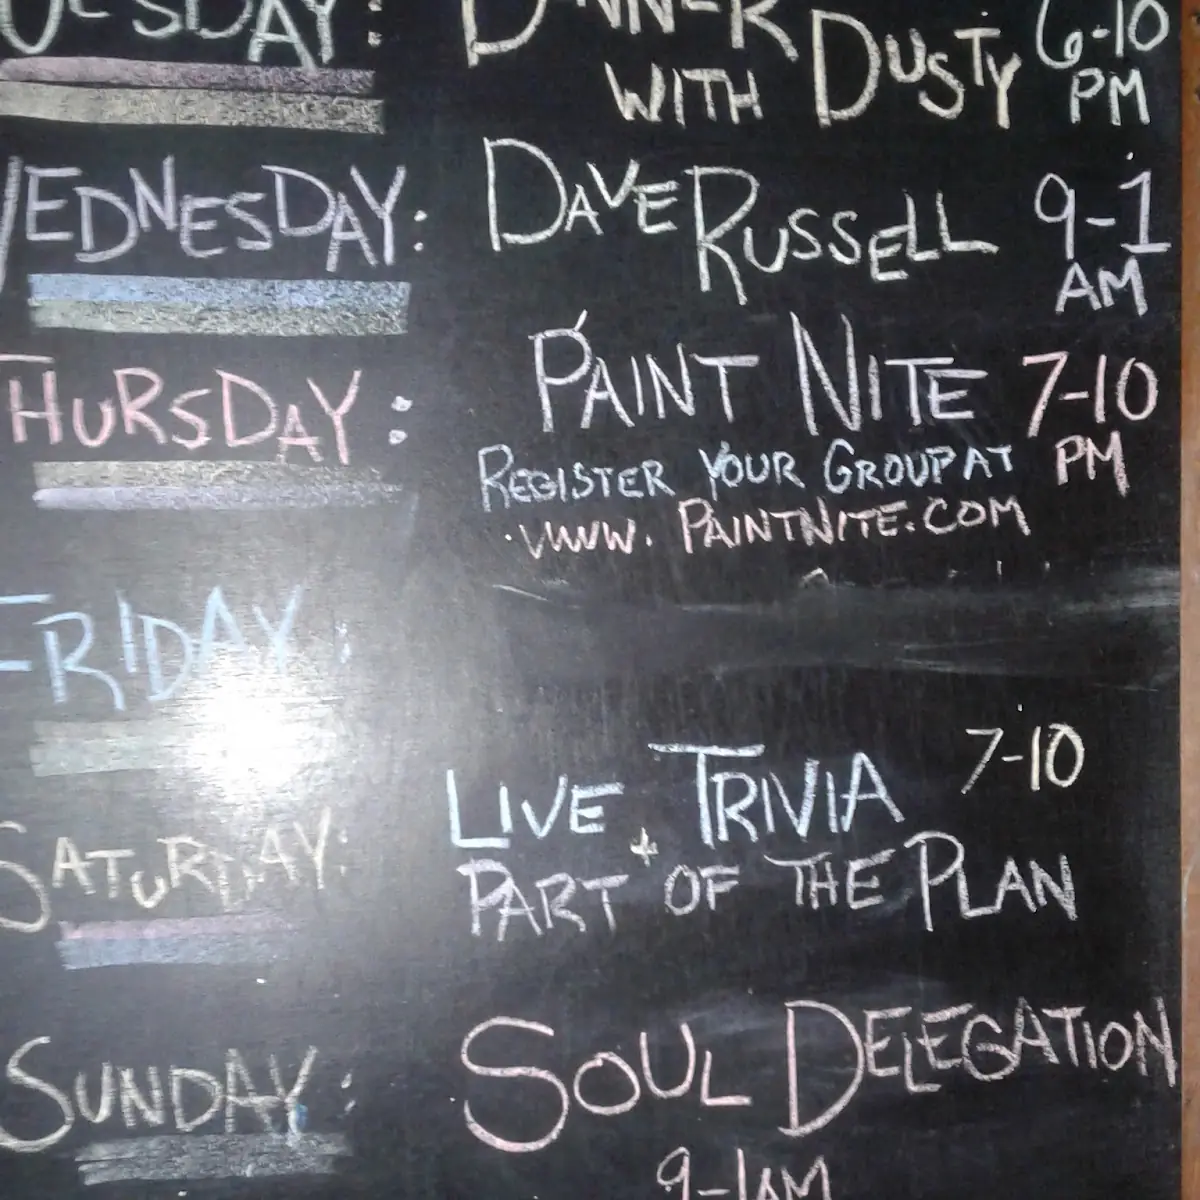 TUESDAY: DINNER 6-10
WITH DUSTY PM
WEDNESDAY: DAVE RUSSELL 9-1
AM
THURSDAY: PAINT NITE 7-10
REGISTER YOUR GROUP AT PM
WWW.PAINTNITE.COM
FRIDAY:
LIVE TRIVIA 7-10
SATURDAY: + PART OF THE PLAN
SUNDAY: SOUL DELEGATION
9-1AM